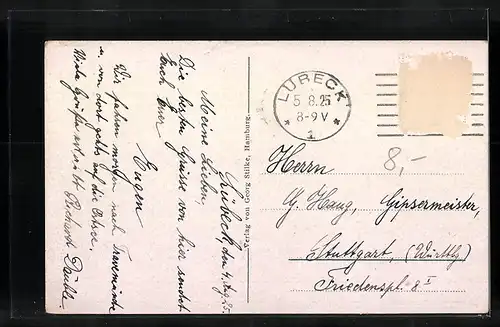 Lübeck, den 4. Aug. 25.
Meine Lieben
Die besten Grüsse von hier sendet
Euch Euer
Eugen
Wir fahren morgen nach Travemünde
u. von dort gehts auf die Ostsee.
Viele Grüße
Verlag von Georg Stilke, Hamburg.
LÜBECK
5.8.25
8-9 V
* 1 *
8,-
Herrn
G. Haug, Gipsermeister,
Stuttgart, (Württbg)
Friedenspl. 8 I